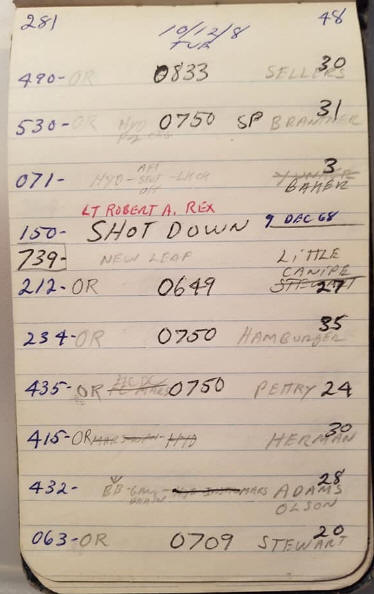 281 10/12/8 48
FUR
490-OR 0833 SELLERS 30
530-OR HYD 0750 SP BRANTNER 31
071- HYD- -LHCH 3
BAKER
LT ROBERT A. REX
150- SHOT DOWN 9 DEC 68
739- NEW LEAF LITTLE
CANIPE
212-OR 0649 STEWART 27
234-OR 0750 HAMBURGER 35
435-OR 0750 PERRY 24
415-OR HYD HERMAN 30
432- ADAMS 28
OLSON
063-OR 0709 STEWART 20